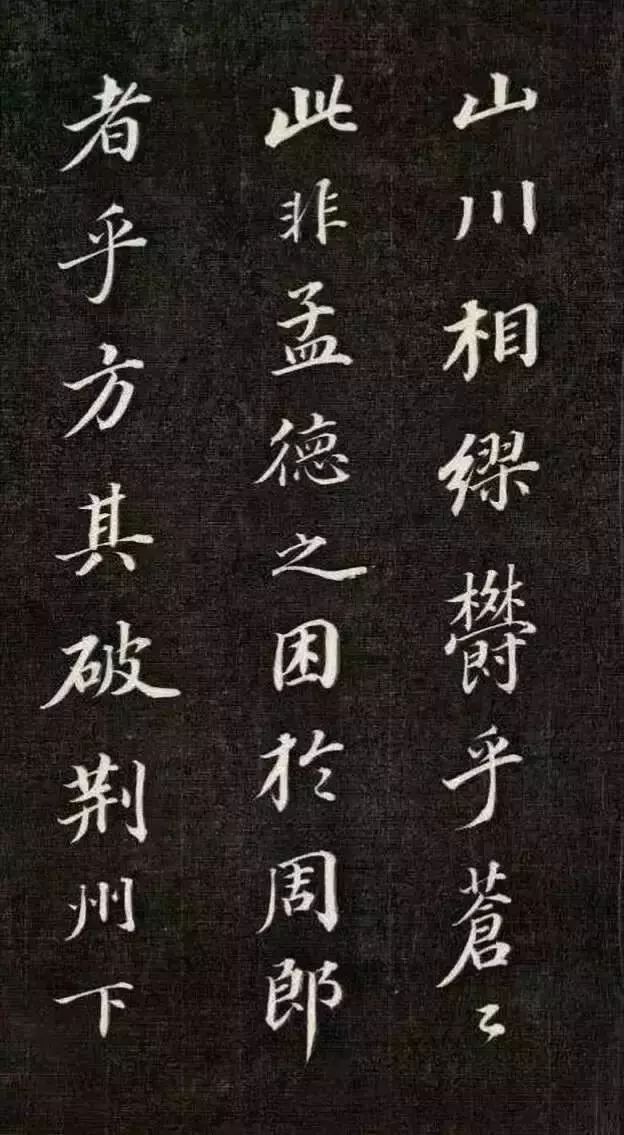 山川相缪欝乎蒼々
此非孟德之困於周郎
者乎方其破荆州下